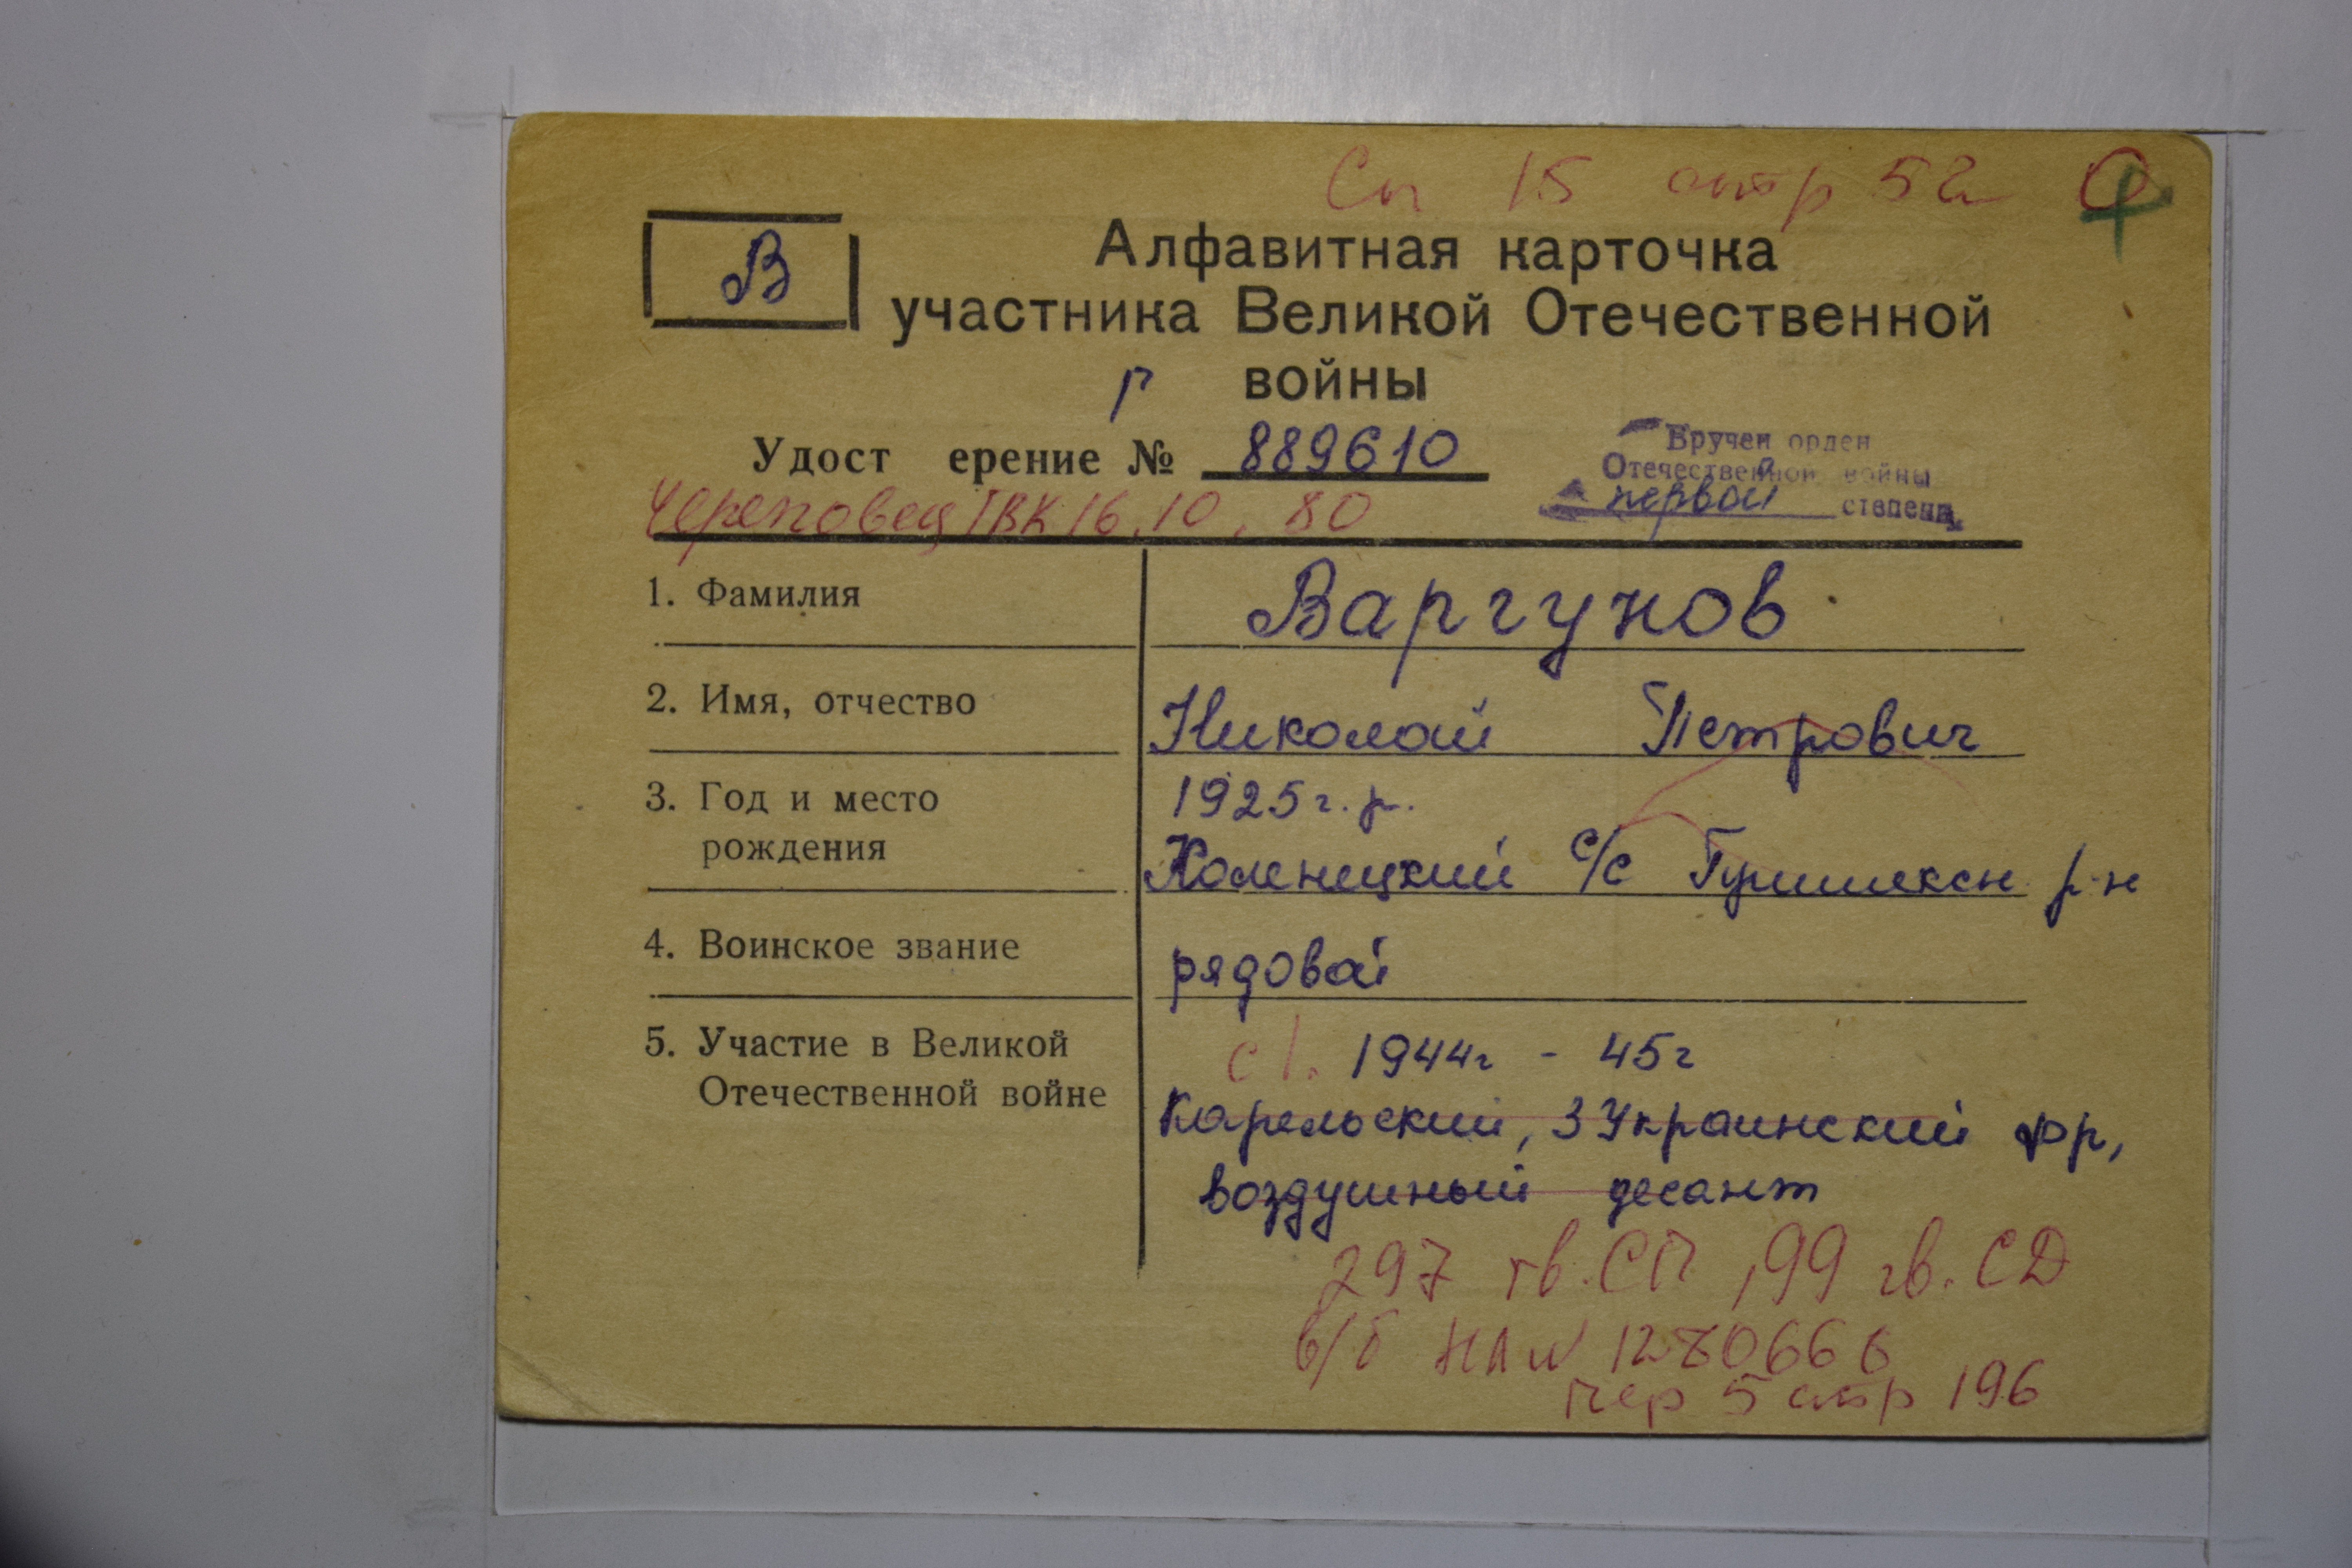 Сп 15 стр 52
В
Алфавитная карточка
участника Великой Отечественной
войны
Г
Удост ерение № 889610
Вручен орден
Отечественной войны
первой степени
Череповец ГВК 16.10.80
1. Фамилия Варгунов
2. Имя, отчество Николай Петрович
3. Год и место 1925г.р.
рождения с/с р-н
4. Воинское звание рядовой
5. Участие в Великой с 1. 1944г - 45г
Отечественной войне Карельский, 3 Украинский фр,
воздушный десант
297 гв.СП, 99 гв.СД
в/б НА N 1280666
пер 5 стр 196